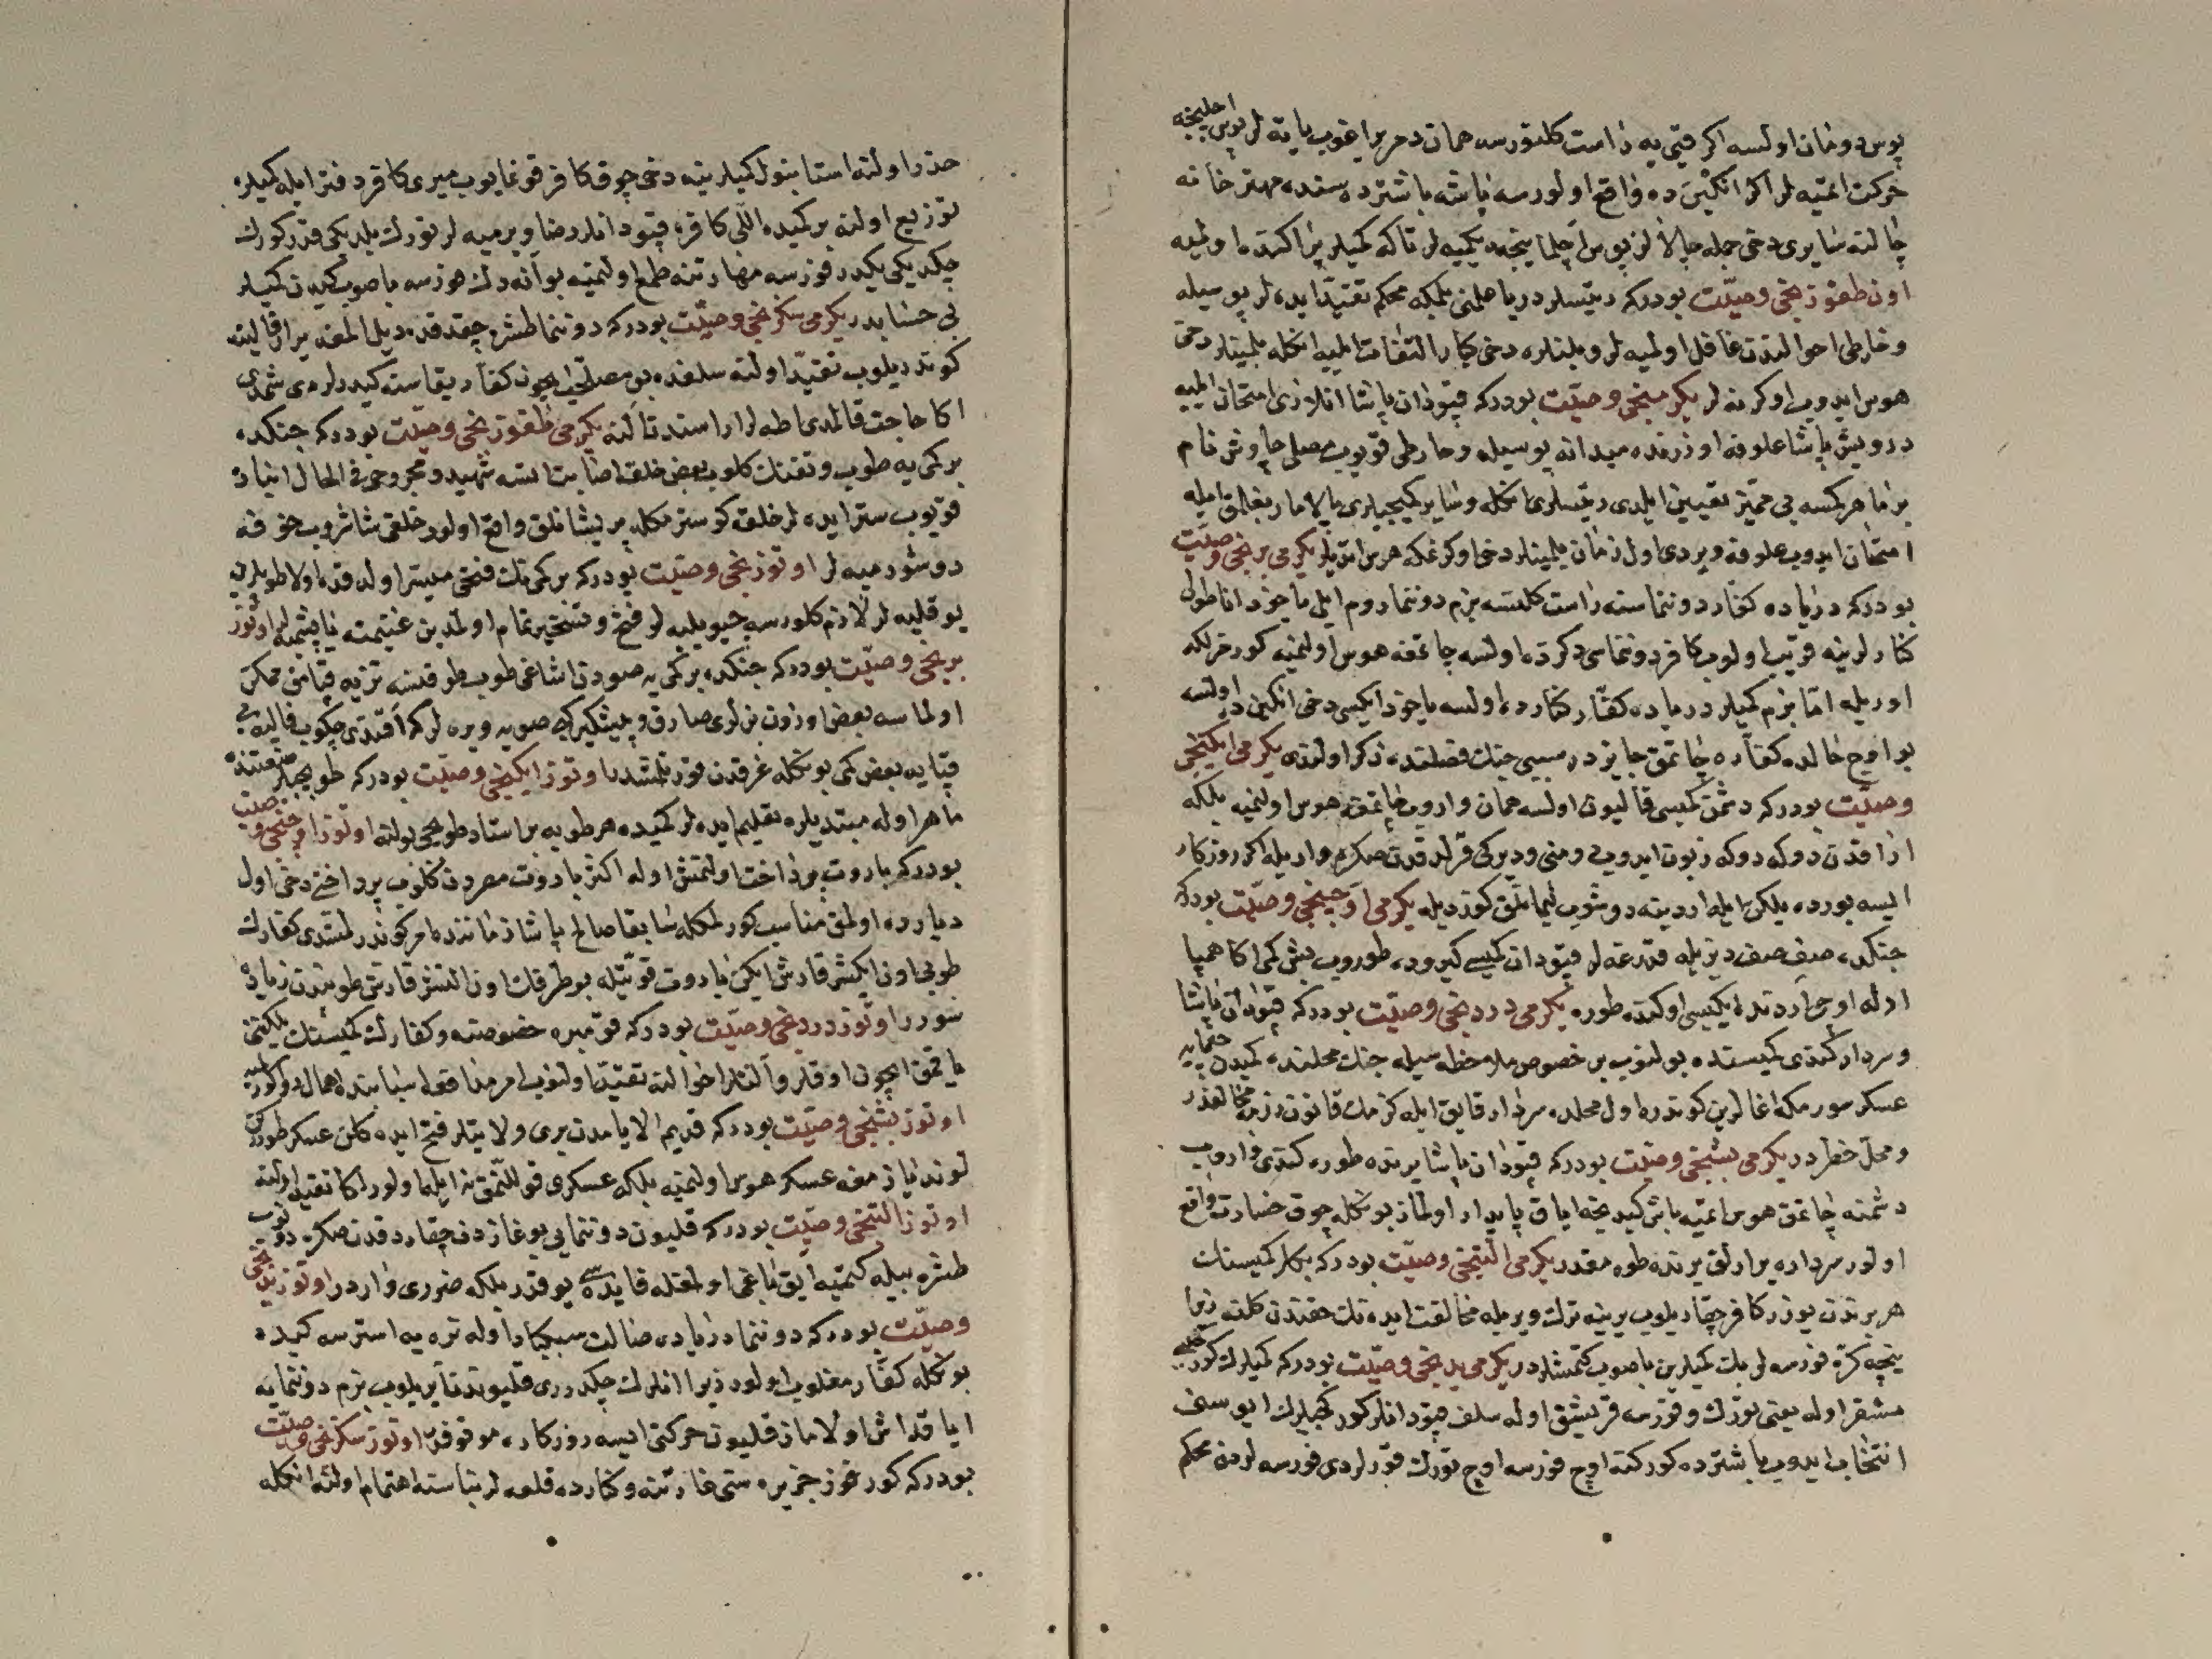 پوس و دومان اولسه اکر قیی یه راست کلنورسه همان دمر براغوب یاته لر پوس اچلمینجه
حرکت ایتمیه لر اکر انکین ده واقع اولورسه پاشه باشترده سنده مهترخانه
چالنه سایری دخی جمله چالالر پوس اچلماینجه یکمیه لر تا که کمیلر براکنده اولمیه
اون طقوزنجی وصیّت بودرکه رئیسلر دریا علمنی بلمکه محکم تقیّد ایده لر پوسیله
وخارطی احوالندن غافل اولمیه لر وبلنلره دخی کبار التفات ایلیه انکله بلمینلر دخی
هوس ایدوب اوکرنه لر یکرمنجی وصیّت بودرکه قپودان پاشا انلاری امتحان ایلیه
درویش پاشا علوفه اوزرنده میدانه پوسیله وخارطی قویوب مصلی چاوش نام
بر ماهر کمسه یی ممیّز تعیین ایلدی رئیسلری انکله وسایر کمیجیلری پالامار بغلمق ایله
امتحان ایدوب علوفه ویردی اول زمان بلمینلر دخی اوکرنمکه هوس ایتدیلر یکرمی برنجی وصیّت
بودرکه دریاده کفار دوننماسنه راست کلنسه بزم دوننما روم ایلی یاخود اناطولی
کنارلرینه قریب اولوب کافر دوننماسی دکزده اولسه چاتمغه هوس اولنمیه کورخرلکه
اوریله امّا بزم کمیلر دریاده کفّار کنارده اولسه یاخود ایکیسی دخی انکین ده اولسه
بو اوچ حالده کفّاره چاتمق جایزدر سببی جنك فصلنده ذکر اولندی یکرمی ایکنجی
وصیّت بودرکه دشمن کمیسی قالیون اولسه همان واروب چاتمغه هوس اولنمیه بلکه
ازاقدن دوکه دوکه زبون ایدوب ومنی ودیرکی قرلدقدن صکره واریله اکر روزکار
ایسه بورده یلکن ایله اردینه دوشوب لیمانلق کوزدیله یکرمی اوچنجی وصیّت بودرکه
جنکده صف صف دیزیله قدرغه لر قپودان کمیسی کیروده طوروب بش کمی اکا همپا
اوله اوچی اردنده ایکیسی اوکنده طوره یکرمی دردنجی وصیّت بودرکه قپودان پاشا
وسردار کندی کمیسنده بولنوب بر خصوص ملاحظه سیله جنك محلنده کمیدن چقمایه
عسکر سورمکه اغالرین کوندره اول محلده سردار قایق ایله کزمك قانون رزمه مخالفدر
ومحلّ خطردر یکرمی بشنجی وصیّت بودرکه قپودان پاشا یرنده طوره کندی واروب
دشمنه چاتمق هوس ایتمیه باش کیدیجه ایاق پایدار اولماز بونکله چوق خسارت واقع
اولور سرداره برارلق یرنده طورمقدر یکرمی التنجی وصیّت بودرکه بکلر کمیسنك
هر برندن یوزر کافر چقاریلوب یرینه ترك ویریله مخالفت ایده نك حقندن کلنه زیرا
نیجه کرّه فورسه لر بك کمیلرین باصوب کتمشلردر یکرمی یدنجی وصیّت بودرکه کمیلرك کورکجیسی
مشقر اوله یعنی تورك وفورسه قریشق اوله سلف قپودانلر کورکجیلرك ایوسنی
انتخاب ایدوب باشترده کورکنه اوچ فورسه اوچ تورك قورلردی فورسه لردن محکم
حذر اولنه استانبول کمیلرینه دخی چوق کافر قونمایوب میری کافر دفتر ایله کمیلره
توزیع اولنه بر کمیده اللّی کافره قپودانلر رضا ویرمیه لر تورك بلدیکی قدر کورك
چکدیکی یکدر فورسه مهارتنه طمع اولنمیه بوآنه دك فورسه باصوب کیدن کمیلر
بی حسابدر یکرمی سکزنجی وصیّت بودرکه دوننما طشره چقدقده دیل المغه برر قالیته
کوندریلوب تقیّد اولنه سلفده بو مصلحت ایچون کفّار یقاسنه کیدرلردی شمدی
اکا حاجت قالمدی اطه لر اراسنده النه یکرمی طقوزنجی وصیّت بودرکه جنکده
بر کمی یه طوپ وتفنك کلوب بعض خلقه اصابت ایتسه شهید ومجروحی فی الحال انباره
قویوب ستر ایده لر خلقه کوسترمکله پریشانلق واقع اولور خلقی شاشروب خوفه
دوشورمیه لر اوتوزنجی وصیّت بودرکه بر کمی نك فتحی میسّر اولدقده اولا طوپلرین
یوقلیه لر لازم کلورسه چیویلیه لر فتح وتسخیر تمام اولمدین غنیمته یاپشمیه لر اوتوز
برنجی وصیّت بودرکه جنکده بر کمی یه صودن اشاغی طوپ طوقنسه تزیه قپامق ممکن
اولماسه بعض اوزون بزلری صاروق وپیشکیرکبی صویه ویره لر که اقندی چکوب فالیه یی
قپایه بعض کمی بونکله غرقدن قورتلمشدر اوتوز ایکنجی وصیّت بودرکه طوپجیلر صنعتنده
ماهر اوله مبتدیلره تعلیم ایده لر کمیده هر طوپه بر استاد طوپجی بولنه اوتوز اوچنجی وصیّت
بودرکه باروت پرداخت اولنمش اوله اکثر باروت مصردن کلوب پرداختی دخی اول
دیارده اولمق مناسب کورلمکله سابقا صالح پاشا زماننده امر کوندرلمشدی کفّارك
طوپی اون ایکیشر قارش ایکن باروت قوّتیله بو طرفك اون التیشر قارش طوپندن زیاده
سورر اوتوز دردنجی وصیّت بودرکه قومبره خصوصنه وکفّارك کمیسنك یلکنی
یاقمق ایچون اوقلر وآلتلر احوالنه تقیّد اولنوب امر مدافعه اسبابنده اهمال کورلمیه
اوتوز بشنجی وصیّت بودرکه قدیم الایامدن بری ولایتلر فتح ایده کلن عسکر طورورکن
لوند یازمغه عسکر هوس اولنمیه بلکه عسکری قوللنمق نه ایله اولور اکا تقیّد اولنه
اوتوز التنجی وصیّت بودرکه قلیون دوننمایی بوغازدن چقاردقدن صکره دونوب
طشره بیله کتمیه ایق باغی اولمغله فایده سی یوقدر بلکه ضرری واردر اوتوز یدنجی
وصیّت بودرکه دوننما دریاده ضالت سبکبار اوله نره یه استرسه کیده
بونکله کفّار مغلوب اولور زیرا انلرك چکدرری قلیوندن آیریلوب بزم دوننمایه
ایاقداش اولاماز قلیون حرکتی ایسه روزکاره موقوفدر اوتوز سکزنجی وصیّت
بودرکه کورغوز جزیره سنی غارتنه وکنارده قلعه لر بناسنه اهتمام اولنه انکله